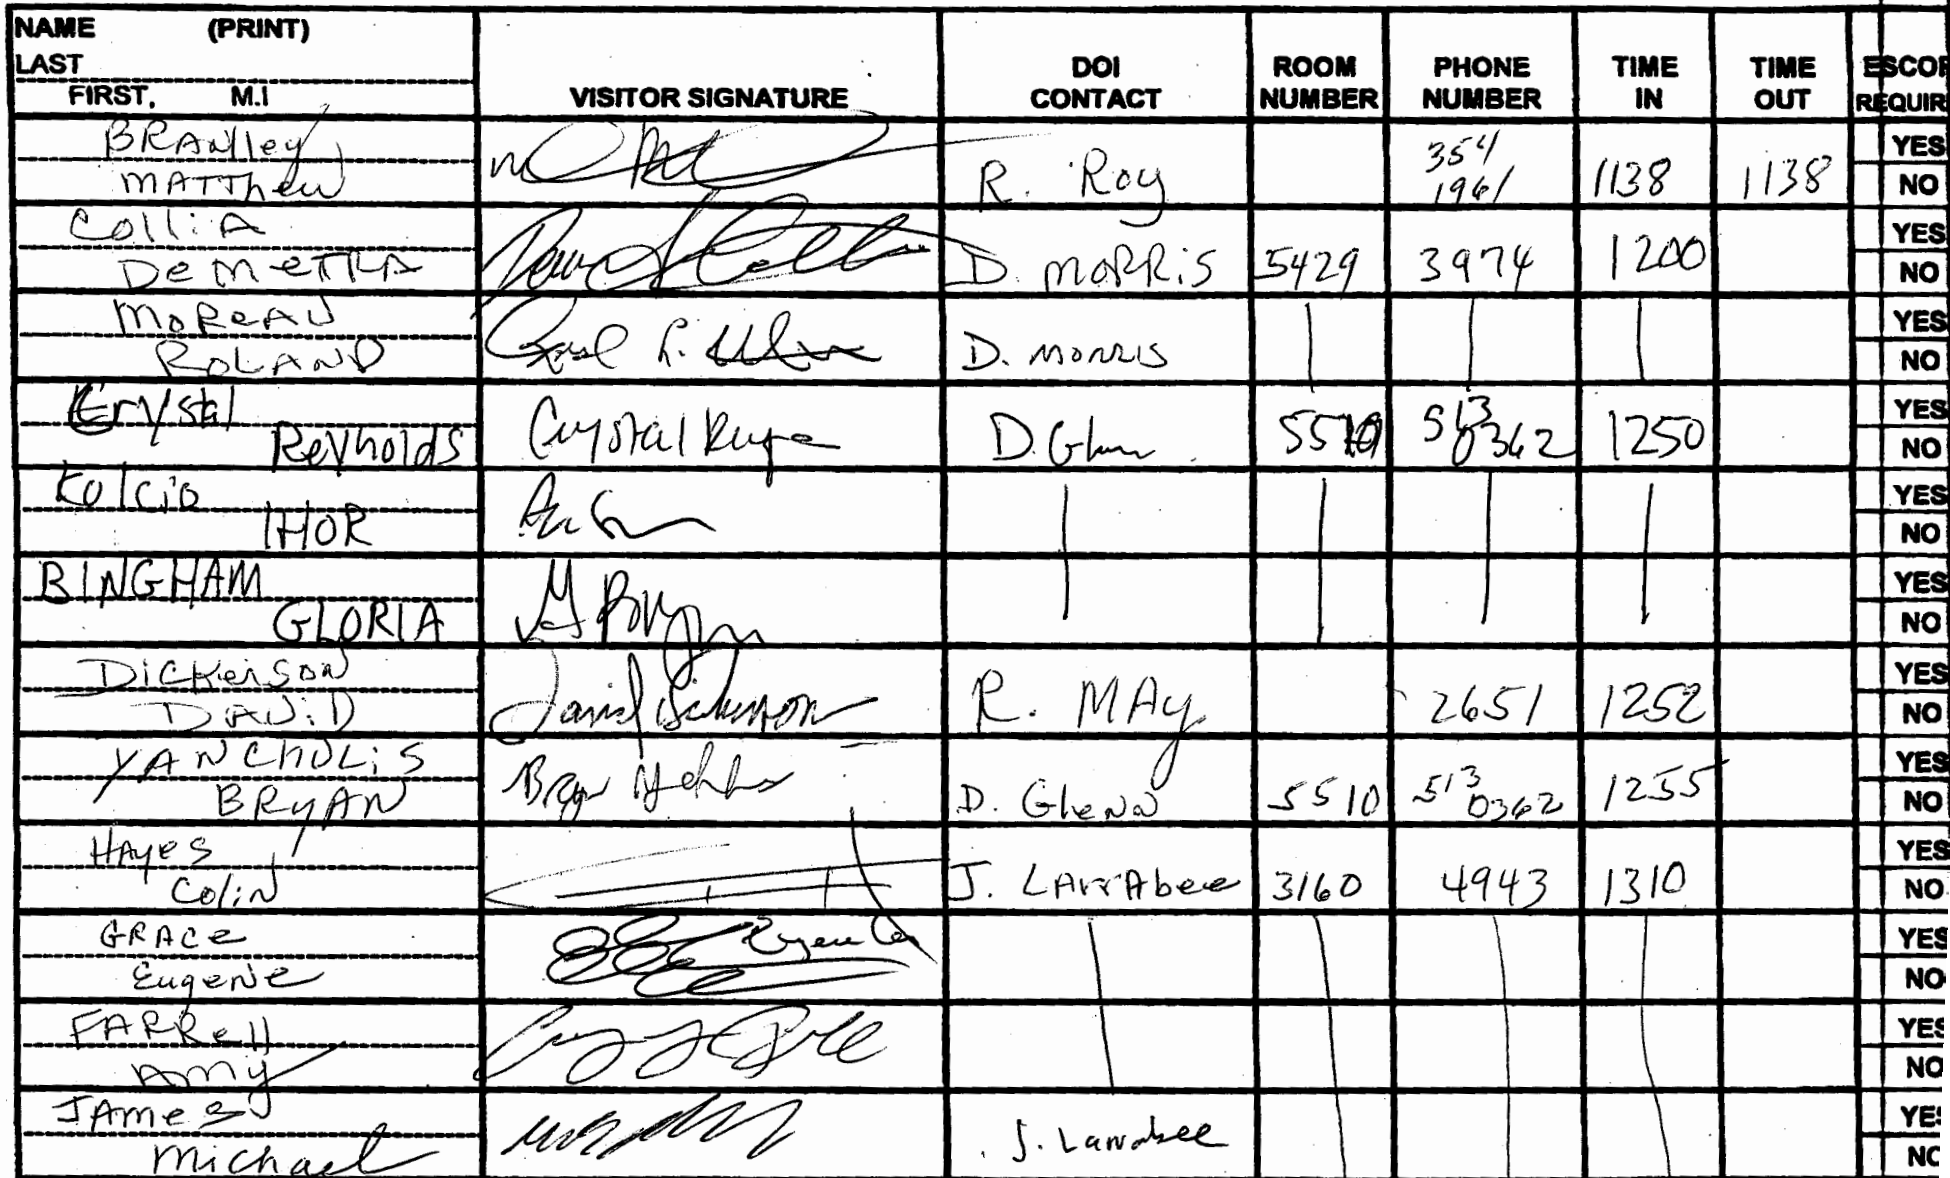 NAME (PRINT)
LAST
FIRST, M.I
VISITOR SIGNATURE
DOI
CONTACT
ROOM
NUMBER
PHONE
NUMBER
TIME
IN
TIME
OUT
ESCOR
REQUIR
BRANlley
MATThew
R. Roy
354
1961
1138
1138
YES
NO
ColliA
DeMETRA
D. MORRiS
5429
3974
1200
YES
NO
MoReAU
ROLAND
D. MORRIS
YES
NO
Crystal
Reynolds
Crystal
D. Glenn
5510
513
0362
1250
YES
NO
Kolcio
IHOR
YES
NO
BINGHAM
GLORIA
YES
NO
DICKerSON
DAViD
David Dickerson
R. MAy
2651
1252
YES
NO
YANCHULiS
BRyAN
D. GleNN
5510
513
0362
1255
YES
NO
HAyeS
ColiN
J. LArrAbee
3160
4943
1310
YES
NO
GRACe
EugeNe
YES
NO
FARRell
Amy
YES
NO
JAmeS
Michael
J. Larrabee
YES
NO